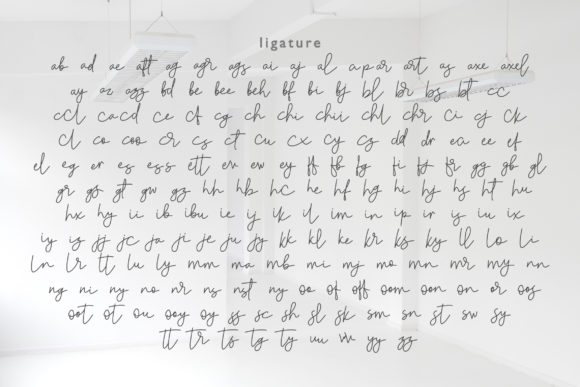 ligature
ab ad ae aft ag agr ags ai aj al apar art as axe axel
ay az azz bd be bee beh bf bi bj bl br bs bt cc
ccl cacd ce cf cg ch chi chii chl chr ci cj ck
cl co coo cr cs ct cu cx cy cz dd dr ea ee ef
el eg er es ess ett ev ew ey ff fb fg fi fj fr gg gb gl
gr gs gt gw gz hh hb hc he hf hg hi hj hs ht hu
hx hy ii ib ibu ie ij ik il im in ip ir is iu ix
iy iz jj jc ja ji je ju jy kk kl ke kr ks ky ll lo li
ln lr lt lu ly mm ma mb mi mj mo mn mr my nn
ng ni nj no nr ns nst ny oo of off oom oon on or oos
oot ot ou ooy oy ss sc sh sl sk sm sn st sw sy
tt tr ts tg ty uu vv yy zz